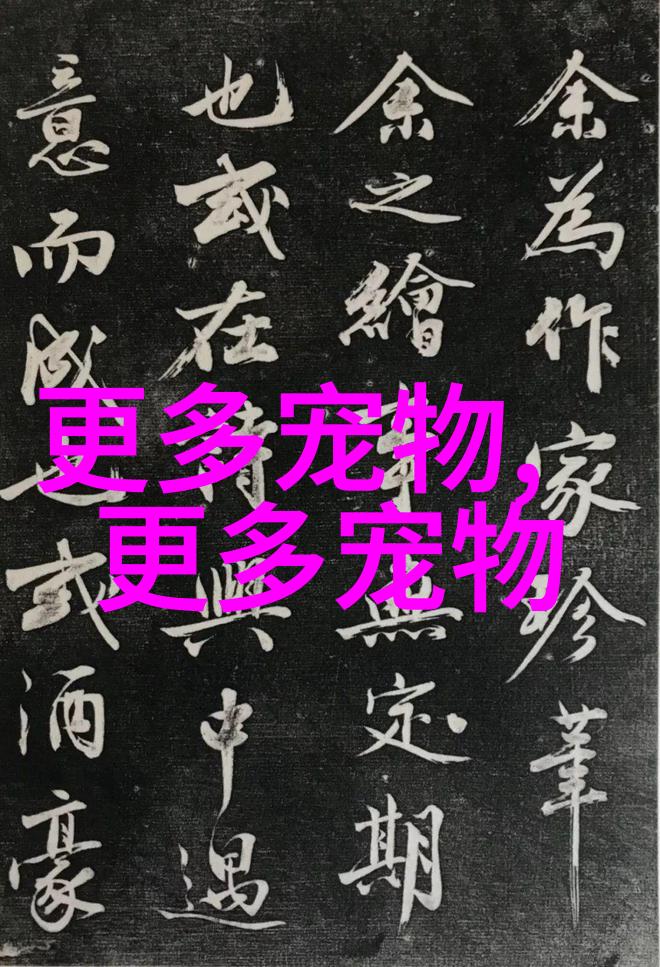 余為作家珍筆
余之繪事無定期
也或在詩興中遇
意而成也或酒豪
更多宠物,
更多宠物